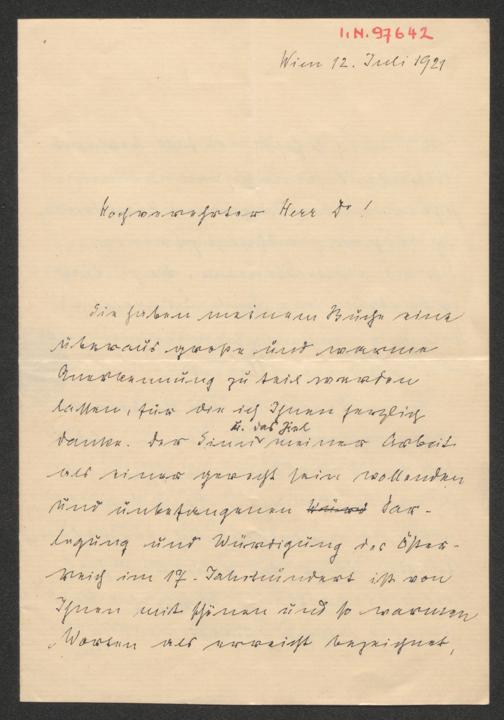 I.N. 97642
Wien 12. Juli 1921
Hochverehrter Herr Dr!
Sie haben meinem Buche eine
überaus große und warme
Anerkennung zu teil werden
lassen, für die ich Ihnen herzlich
u. das Ziel
danke. Der Sinn meiner Arbeit
als einer gerecht sein wollenden
und unbefangenen Würd Dar-
legung und Würdigung des Öster-
reich im 17. Jahrhundert ist von
Ihnen mit schönen und so warmen
Worten als erreicht bezeichnet,